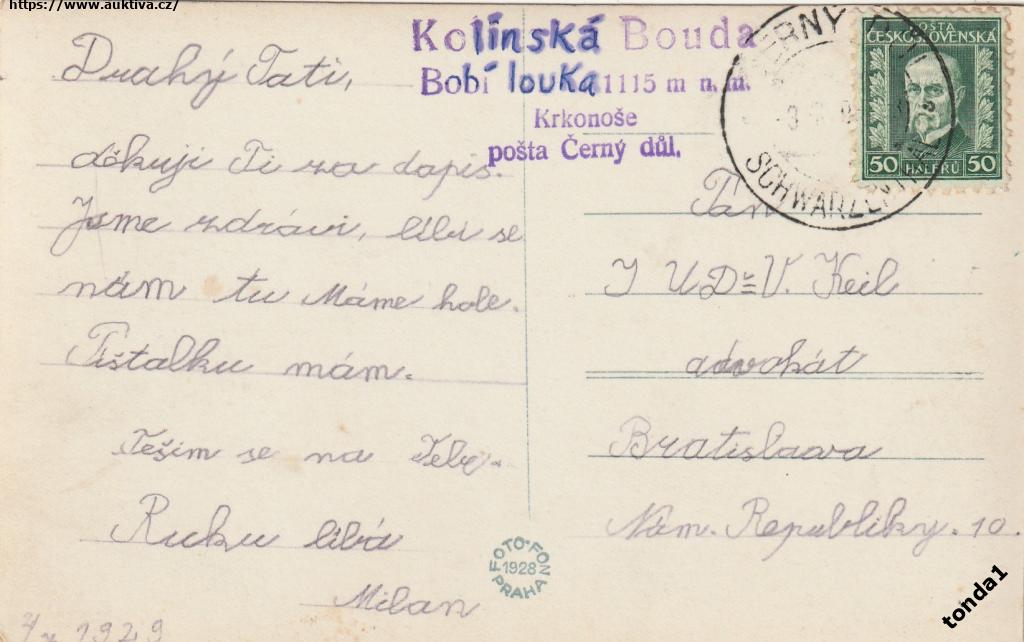 https://www.auktiva.cz/
Drahý Tati,
děkuji Ti za dopis.
Jsme zdrávi, líbí se
nám tu Máme hole.
Píšťalku mám.
Těším se na Tebe.
Ruku líbá
Milan
1929
Kolínská Bouda
Bobí louka 1115 m n. m.
Krkonoše
pošta Černý důl.
ČERNÝ DŮL
SCHWARZENTHAL
POŠTA
ČESKOSLOVENSKÁ
50 HALÉŘŮ 50
Pan
JUDr V. Keil
advokát
Bratislava
Nám. Republiky. 10.
FOTO-FON
1928
PRAHA
tonda1